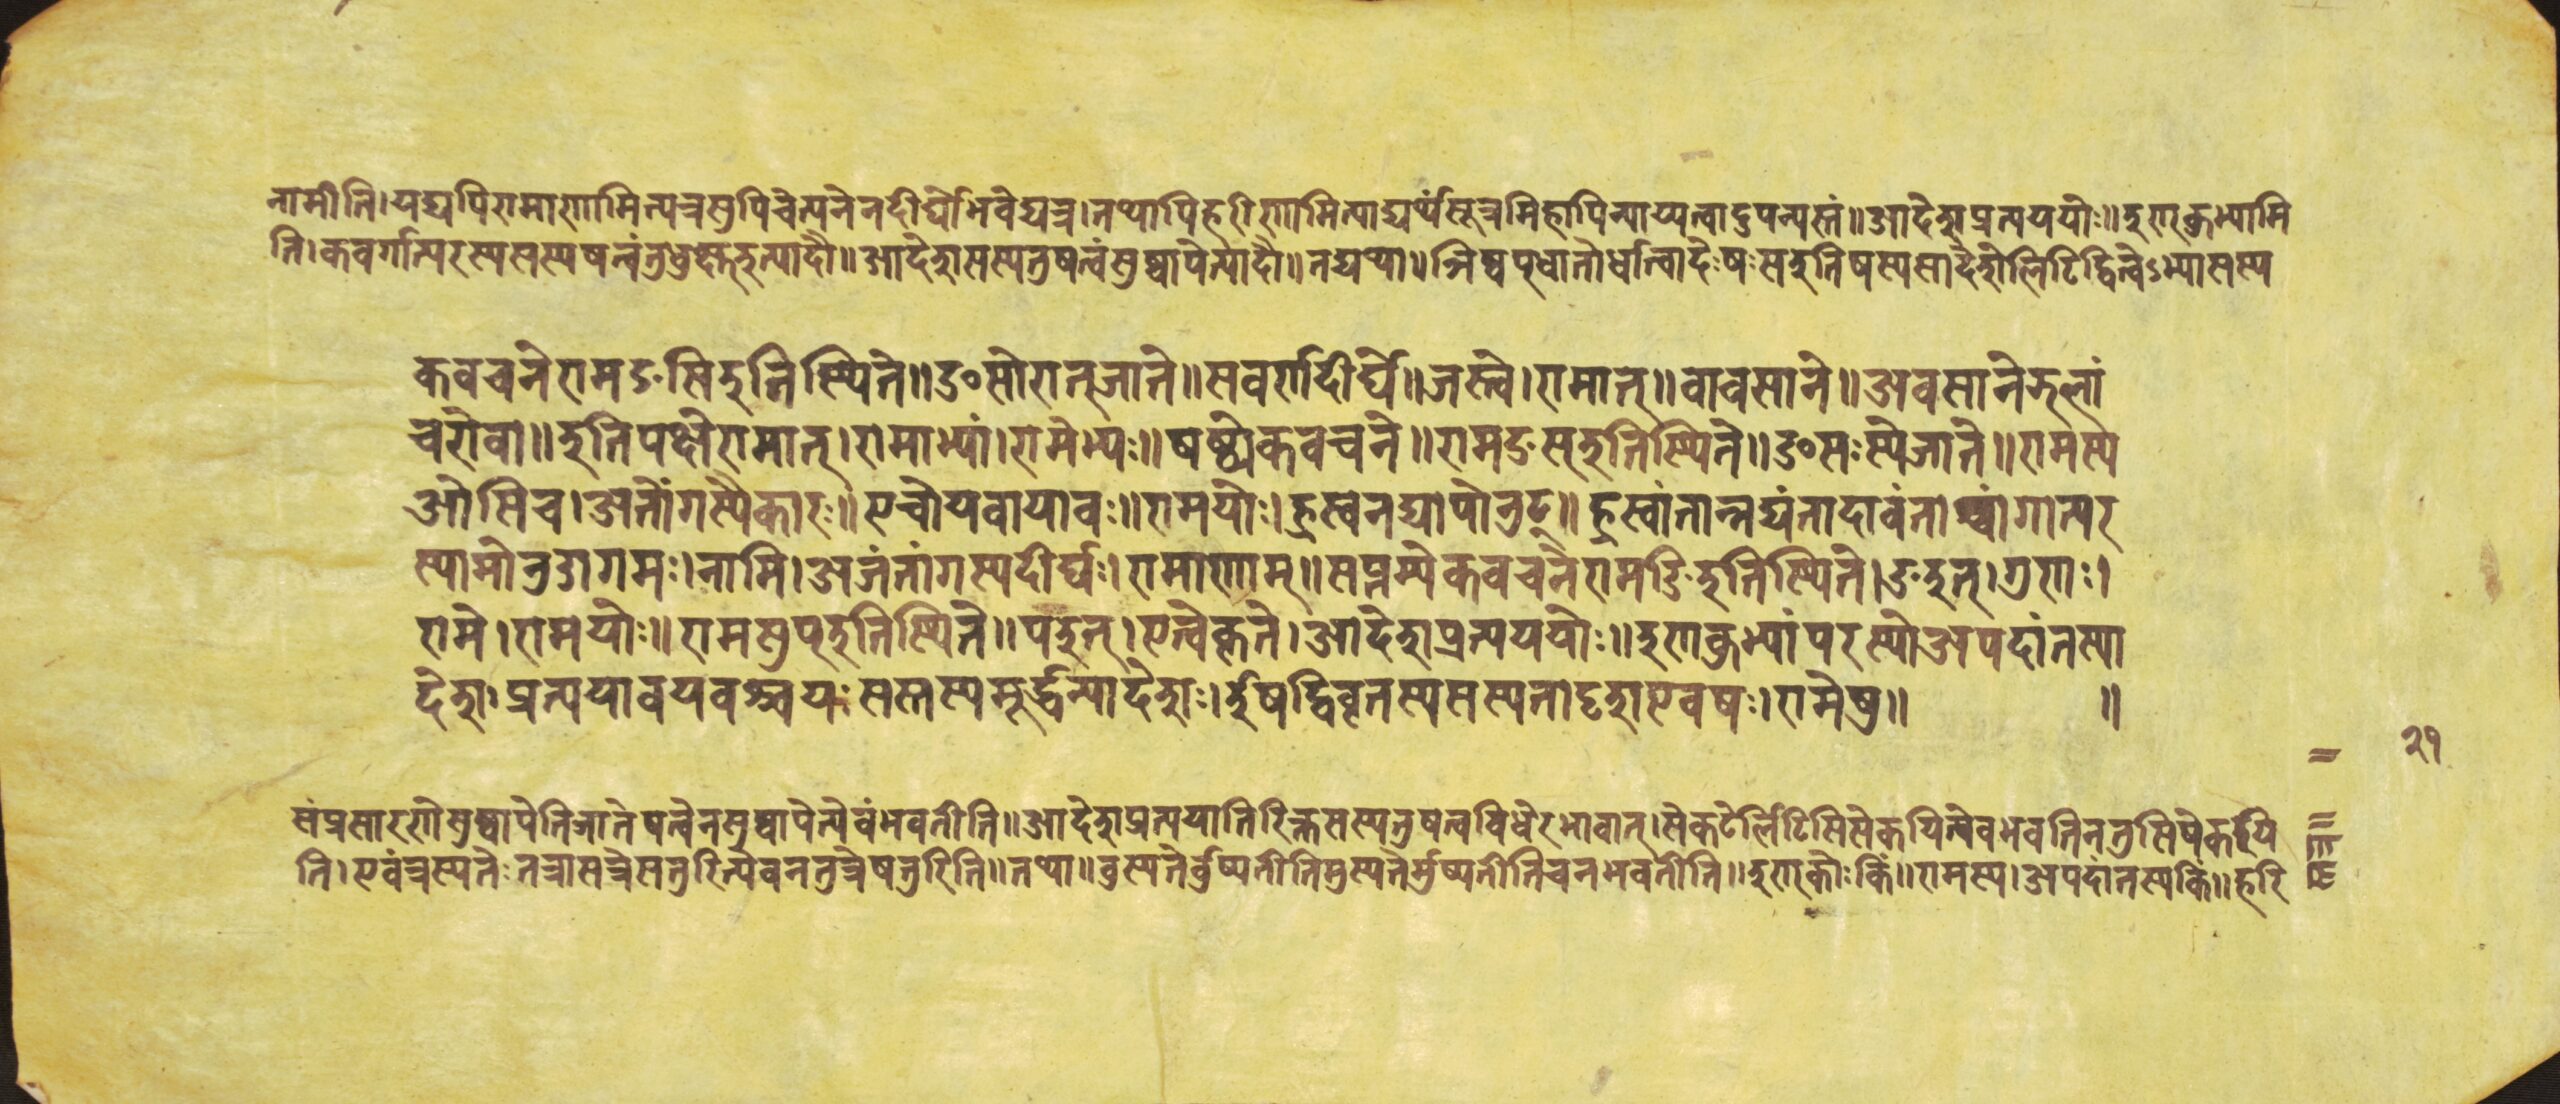 नामीति।यद्यपिरामाणामित्यत्रसुपिचेत्यनेनदीर्घोभवेद्यत्र।तथापिहरीणामित्याद्यर्थंसूत्रमिहापिन्याय्यत्वादुपन्यस्तं॥आदेशप्रत्यययोः॥इण्कुभ्यामि
ति।कवर्गात्परस्यसस्यषत्वंतुधुक्ष्वइत्यादौ॥आदेशसस्यतुषत्वंसुष्वापेत्यादौ॥तद्यथा॥ञिष्वप्धातोर्धात्वादेःषःसइतिषस्यसादेशेलिटिद्वित्वेऽभ्यासस्य
कवचनेरामङसिइतिस्थिते॥ङसोरात्जाते॥सवर्णदीर्घे॥जस्त्वे।रामात्॥वावसाने॥अवसानेझलां
चरोवा॥इतिपक्षेरामात्।रामाभ्यां।रामेभ्यः॥षष्ठ्येकवचने॥रामङस्इतिस्थिते॥ङसःस्येजाते॥रामस्य
ओसिच।अतोंगस्यैकारः॥एचोयवायावः॥रामयोः।ह्रस्वनद्यापोनुट्॥ह्रस्वांतान्नद्यंतादाबंताच्चांगात्पर
स्यामोनुडागमः।नामि।अजंतांगस्यदीर्घः।रामाणाम्॥सप्तम्येकवचनेरामङिइतिस्थिते।ङइत्।गुणः।
रामे।रामयोः॥रामसुप्इतिस्थिते॥पइत्।एत्वेकृते।आदेशप्रत्यययोः॥इण्कुभ्यांपरस्योअपदांतस्या
देशः।प्रत्ययावयवश्चयःसस्तस्यमूर्द्धन्यादेशः।ईषद्विवृतस्यसस्यतादृशएवषः।रामेषु॥ ॥
२१
संप्रसारणेसुष्वापेतिजातेषत्वेनसुष्वापेत्येवंभवतीति॥आदेशप्रत्ययातिरिक्तसस्यतुषत्वविधेरभावात्।सेकटेर्लिटिसिसेकयित्वेवभवतिनतुसिषेकयि
ति।एवंत्रस्यतेःतत्रासत्रेसतुरित्येवनतुत्रेषतुरिति॥तथा॥वुस्यतेर्वुष्यतीतिमुस्यतेर्मुष्यतीतिचनभवतीति॥इण्कोःकिं॥रामस्य।अपदांतस्यकिं॥हरि